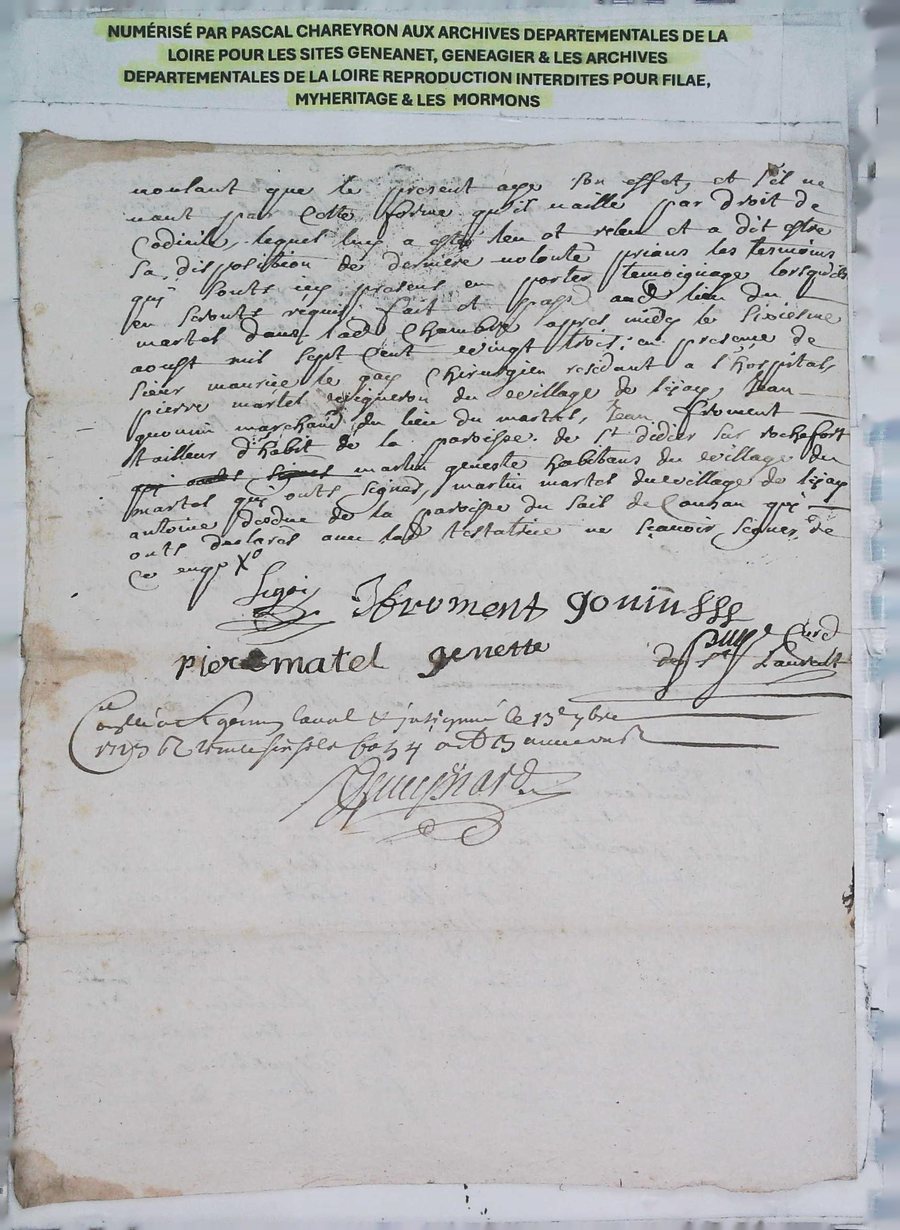 NUMÉRISÉ PAR PASCAL CHAREYRON AUX ARCHIVES DEPARTEMENTALES DE LA
LOIRE POUR LES SITES GENEANET, GENEAGIER & LES ARCHIVES
DEPARTEMENTALES DE LA LOIRE REPRODUCTION INTERDITES POUR FILAE,
MYHERITAGE & LES MORMONS
voulant que le present aye son effet, et s'il ne
vaut par cette forme qu'il vaille par droit de
Codicile lequel luy a esté leu et releu et a dit estre
sa disposition de derniere volonté prians les temoins
quy sonts icy presens en porter temoignage lorsqu'ils
en seronts requis, fait et passé aud lieu du
martel dans lad Chambre apres midy le sixiesme
aoust mil sept Cent vingt trois, en presence de
sieur maurice le gay Chirurgien residant a l'hospital,
pierre martel vigneron du village de , Jean
gounin marchand du lieu du martel, Jean froment
tailleur d'habit de la paroisse de st didier sur rochefort
martin geneste habitans du village du
martel quy onts signes, martin martel du village de
antoine de la paroisse du Sail de Couzan quy
onts declares avec lad testatrice ne sçavoir signer, de
ce enqs
Jfroment gouiin
pierematel genette
Curé
de st Laurent
le 13e 7bre